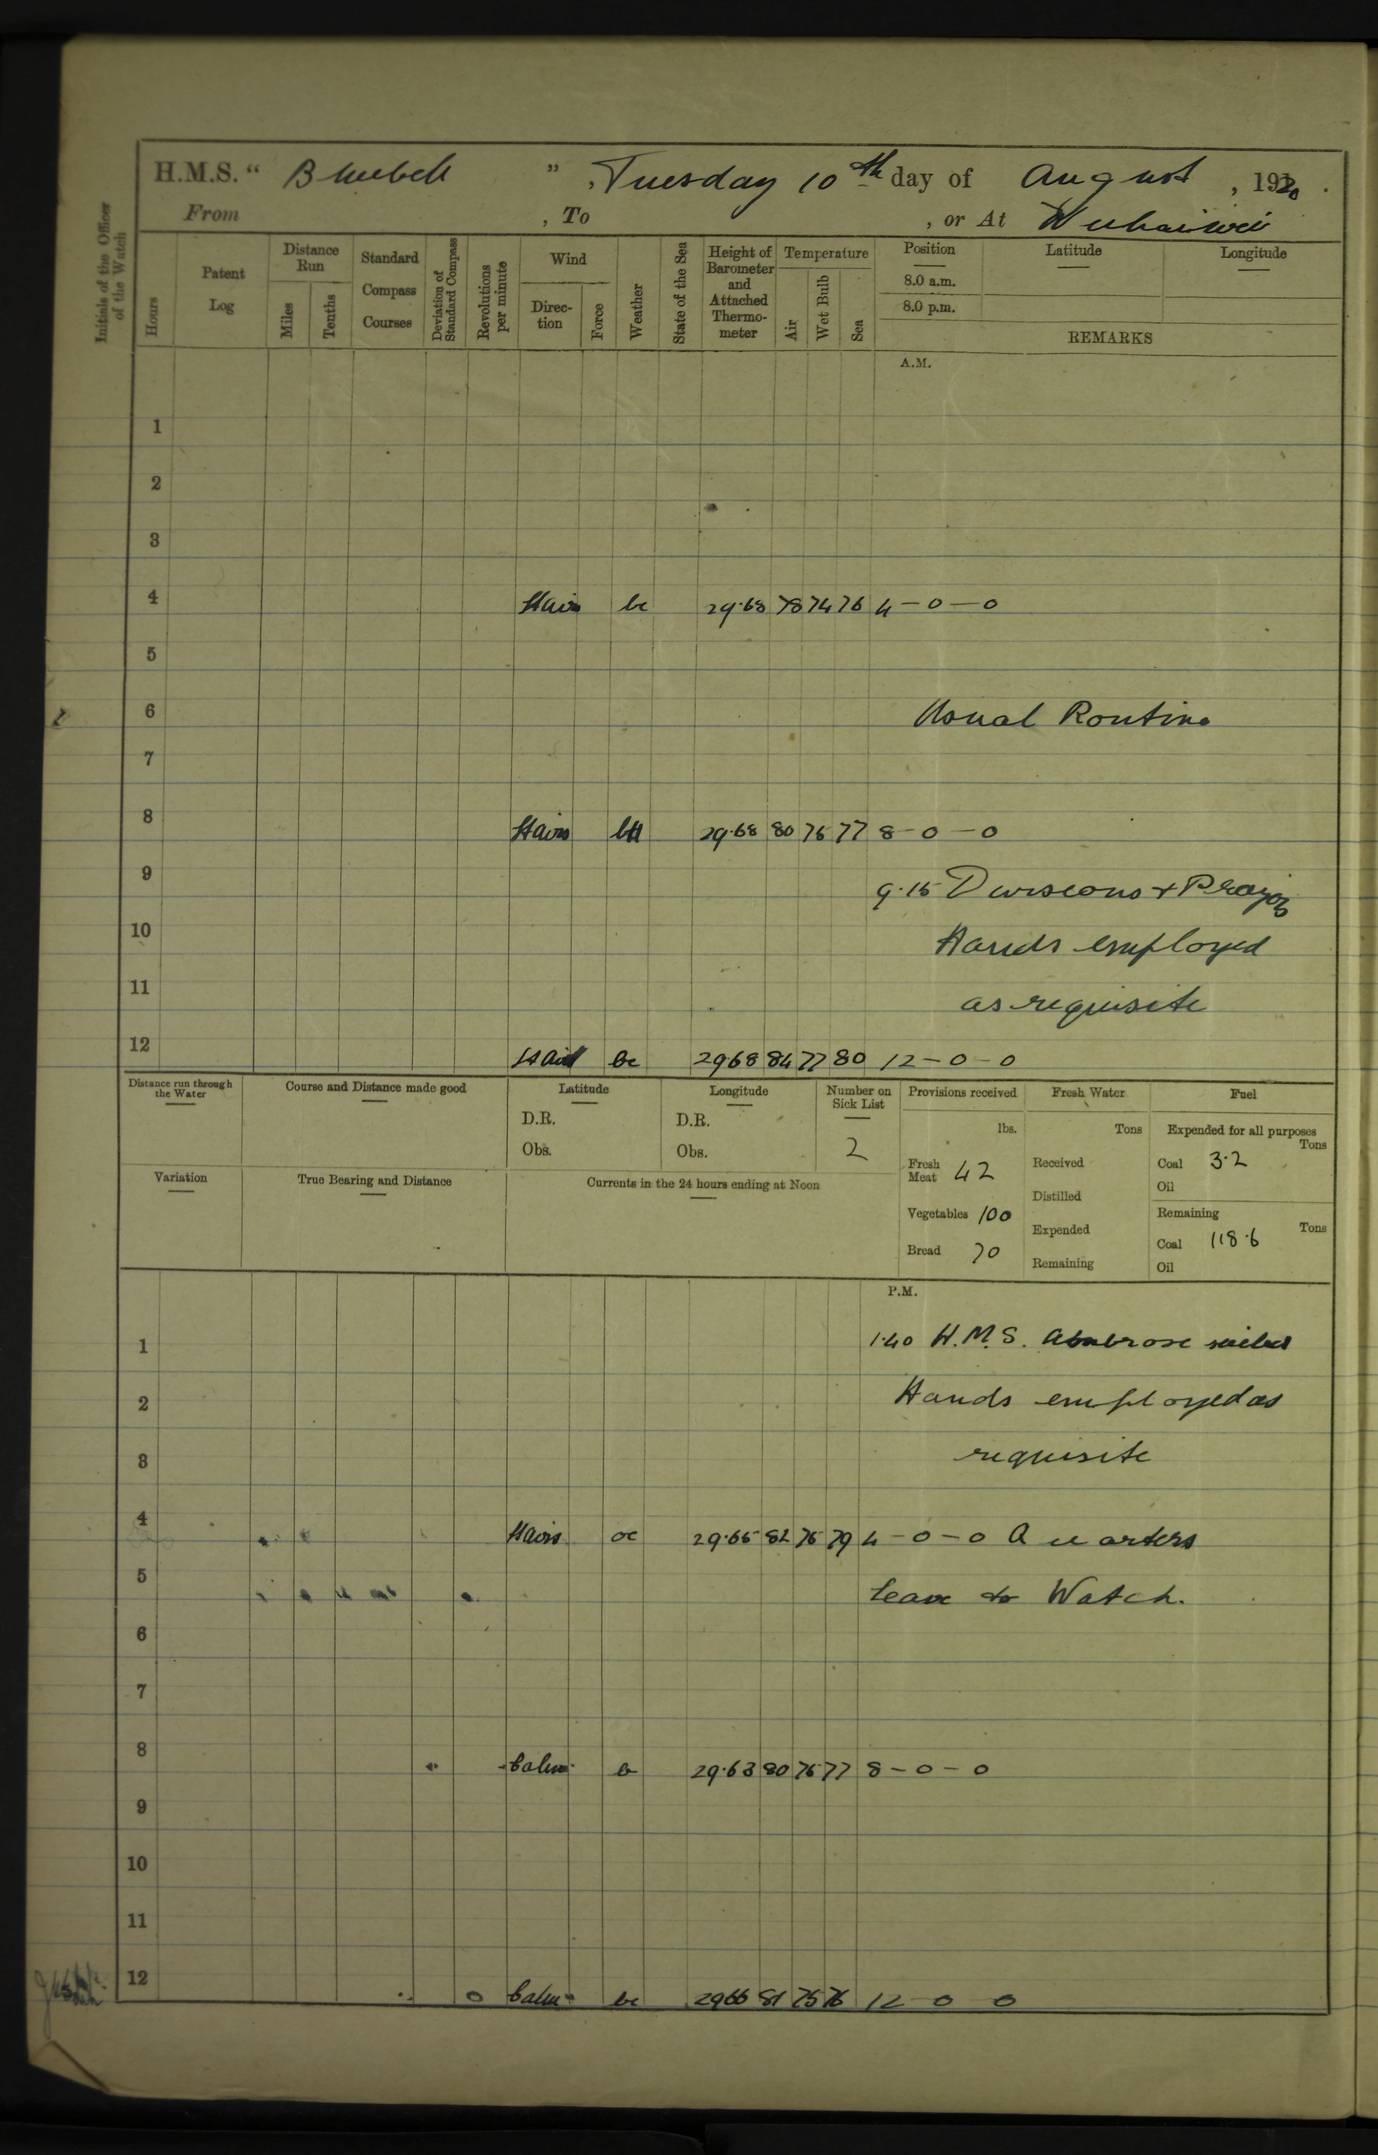 H.M.S. “ Bluebell ”, Tuesday 10th day of August, 1920.
From , To , or At Weihaiwei
Initials of the Officer of the Watch
Hours
Patent Log
Distance Run
Miles
Tenths
Standard Compass Courses
Deviation of Standard Compass
Revolutions per minute
Wind
Direction
Force
Weather
State of the Sea
Height of Barometer and Attached Thermometer
Temperature
Air
Wet Bulb
Sea
Position
8.0 a.m.
8.0 p.m.
Latitude
Longitude
REMARKS
A.M.
1
2
3
4 bc 29.68 78 74 76 4-0-0
5
6 Usual Routine
7
8 29.68 80 76 77 8-0-0
9 9.15 Divisions + Prayers
10 Hands employed
11 as requisite
12 bc 2968 84 77 80 12-0-0
Distance run through the Water
Course and Distance made good
Latitude
D.R.
Obs.
Longitude
D.R.
Obs.
Number on Sick List
2
Provisions received
lbs.
Fresh Meat 42
Vegetables 100
Bread 70
Fresh Water
Tons
Received
Distilled
Expended
Remaining
Fuel
Expended for all purposes
Tons
Coal 3.2
Oil
Remaining
Tons
Coal 118.6
Oil
Variation
True Bearing and Distance
Currents in the 24 hours ending at Noon
P.M.
1 1.40 H.M.S. Ambrose sailed
2 Hands employed as
3 requisite
4 oc 29.65 82 76 79 4-0-0 Quarters
5 Leave to Watch.
6
7
8 Calm b 29.63 80 76 77 8-0-0
9
10
11
12 0 Calm bc 2966 81 75 76 12 - 0 0